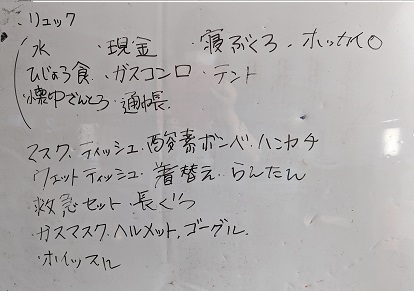 ・リュック
水 ・現金 ・寝ぶくろ ・ホッカイロ
ひじょう食 ・ガスコンロ ・テント
懐中でんとう ・通帳
マスク・ティッシュ・酸素ボンベ・ハンカチ
ウェットティッシュ・着替え・らんたん
・救急セット・長ぐつ
・ガスマスク・ヘルメット・ゴーグル
・ホイッスル